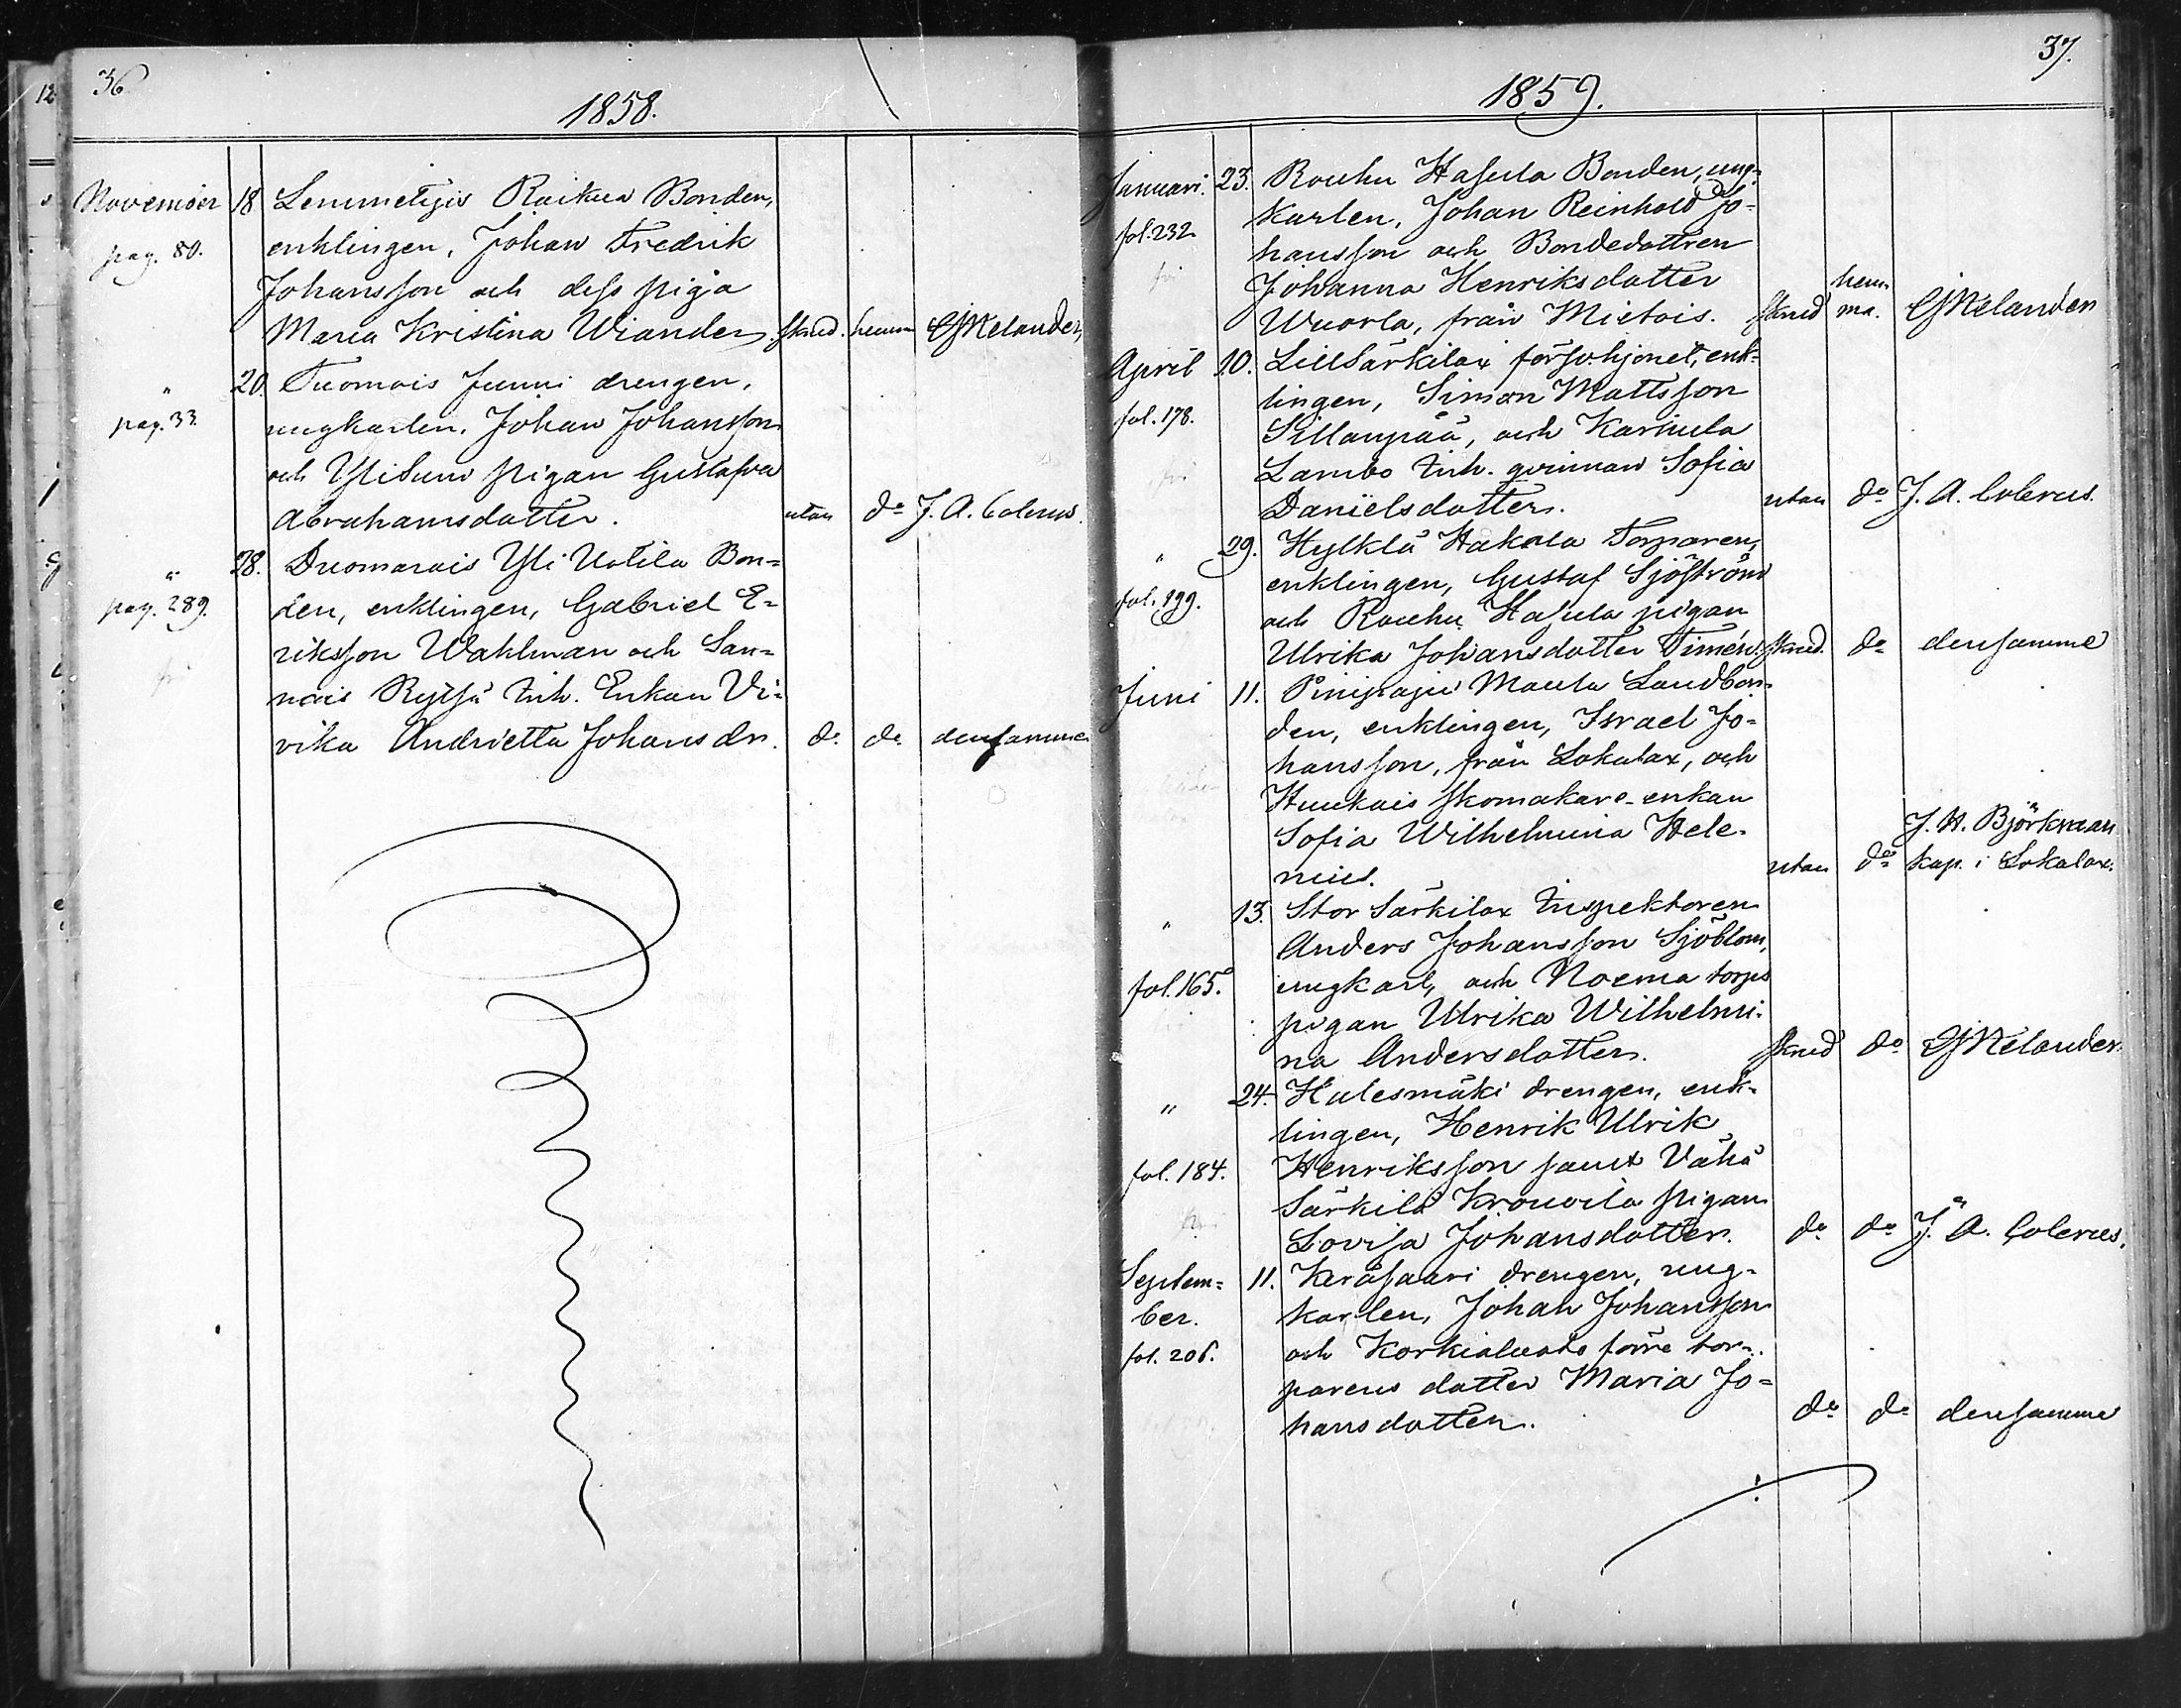 36
1858.
November 18 Lemmetyis Raikua Bonden,
pag. 80. enklingen, Johan Fredrik
Johansson och dess piga
Maria Kristina Wiander. skrud. hemma CJMelander,
" 20. Tuomois Junni drengen,
pag. 33. ungkarlen, Johan Johansson
och Ylisuu pigan Gustafva
Abrahamsdotter. utan do J. A. Colerus.
" 28. Duomarais Yli Uotila Bon-
pag. 289. den, enklingen, Gabriel E-
riksson Wahlman och San-
fri nais Rytsä Inh. Enkan Vi-
vika Andrietta Johansdr. do do densamme
37.
1859.
Januari. 23. Rouhu Hasula Bonden, ung-
fol. 232 karlen, Johan Reinhold Jo-
hansson och Bondedottren
fri Johanna Henriksdotter
Wuorla, från Mietois. skrud hem-
ma. CJMelander
April 10. Lillsärkilax försvhjonet, enk-
fol. 178. lingen, Simon Mattsson
Sillanpää, och Karhula
fri Lambo Inh. qvinnan Sofia
Danielsdotter. utan do J. A. Colerus.
" 29. Hylklä Hakala Torparen,
fol. 199. enklingen, Gustaf Sjöström
och Rouhu Hasula pigan
Ulrika Johansdotter Timén. skrud. do densamme
Juni 11. Pinipaju Maula Landbon-
den, enklingen, Israel Jo-
hansson, från Lokalax, och
Huukais skomakare-enkan
Sofia Wilhelmina Hele-
nius. utan do J. H. Björkman
kap. i Lokalax.
" 13. Stor Särkilax Inspektoren
Anders Johansson Sjöblom,
fol. 165. ungkarl, och Noema torps
pigan Ulrika Wilhelmi-
na Andersdotter. skrud do CJMelander
" 24. Hulesmäki drengen, enk-
lingen, Henrik Ulrik
fol. 184. Henriksson samt Vähä
Särkilä Krouvila pigan
fri Lovisa Johansdotter. do do J. A. Colerus.
Septem- 11. Keräsaari drengen, ung-
ber. karlen, Johan Johansson
fol. 206. och Korkialuoto förre tor-
parens dotter Maria Jo-
hansdotter. do do densamme